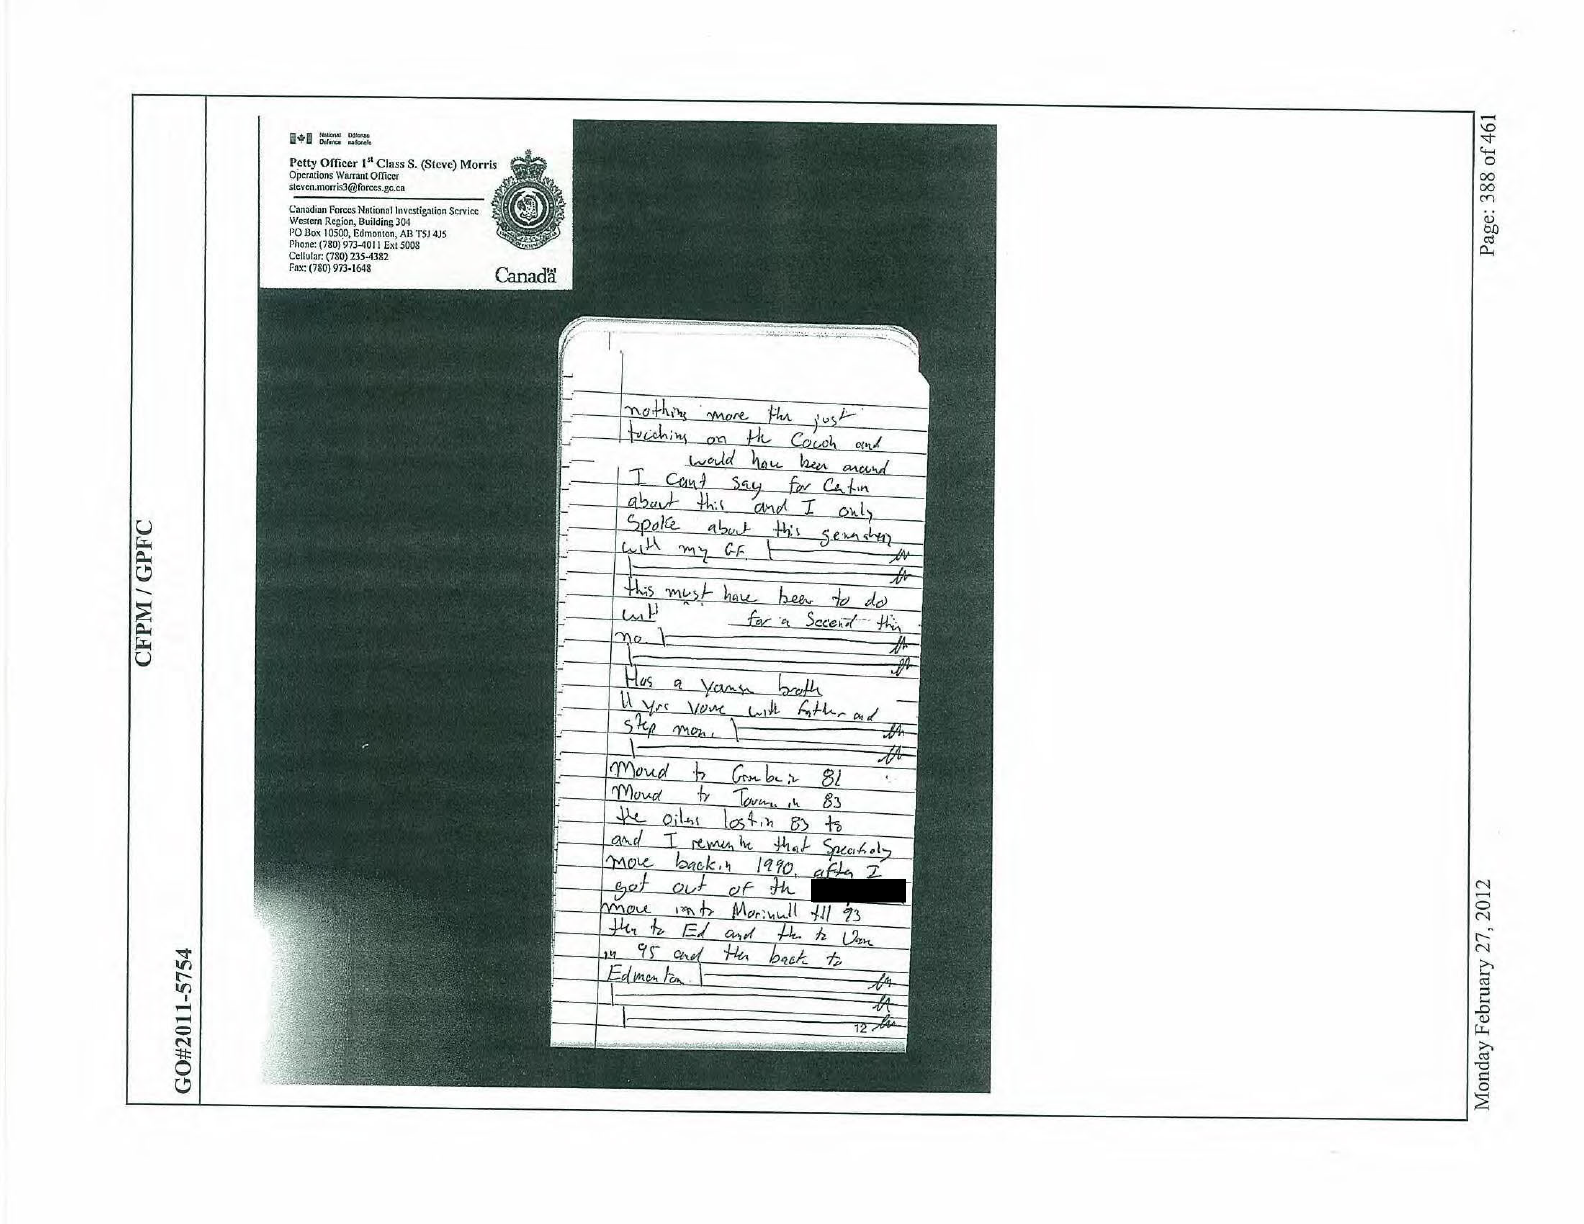 CFPM / GPFC
GO#2011-5754
National Defense
Defence nationale
Petty Officer 1st Class S. (Steve) Morris
Operations Warrant Officer
steven.morris3@forces.gc.ca
Canadian Forces National Investigation Service
Western Region, Building 304
PO Box 10500, Edmonton, AB T5J 4J5
Phone: (780) 973-4011 Ext 5008
Cellular: (780) 235-4382
Fax: (780) 973-1648
Canada
nothing more the just
touching on the Couch and
would have been around
I Cant Say for Certin
about this and I only
Spoke about this
with my GF.
this must have been to do
with for a Second
no
Has a
11 yrs with father and
step mom.
Moved to 81
Moved to in 83
the oilers lost in 83 to
and I that
move back in 1990, after I
got out of th
move to till 93
then to Ed and the to
in 95 and then back to
Edmonton.
12
Page: 388 of 461
Monday February 27, 2012